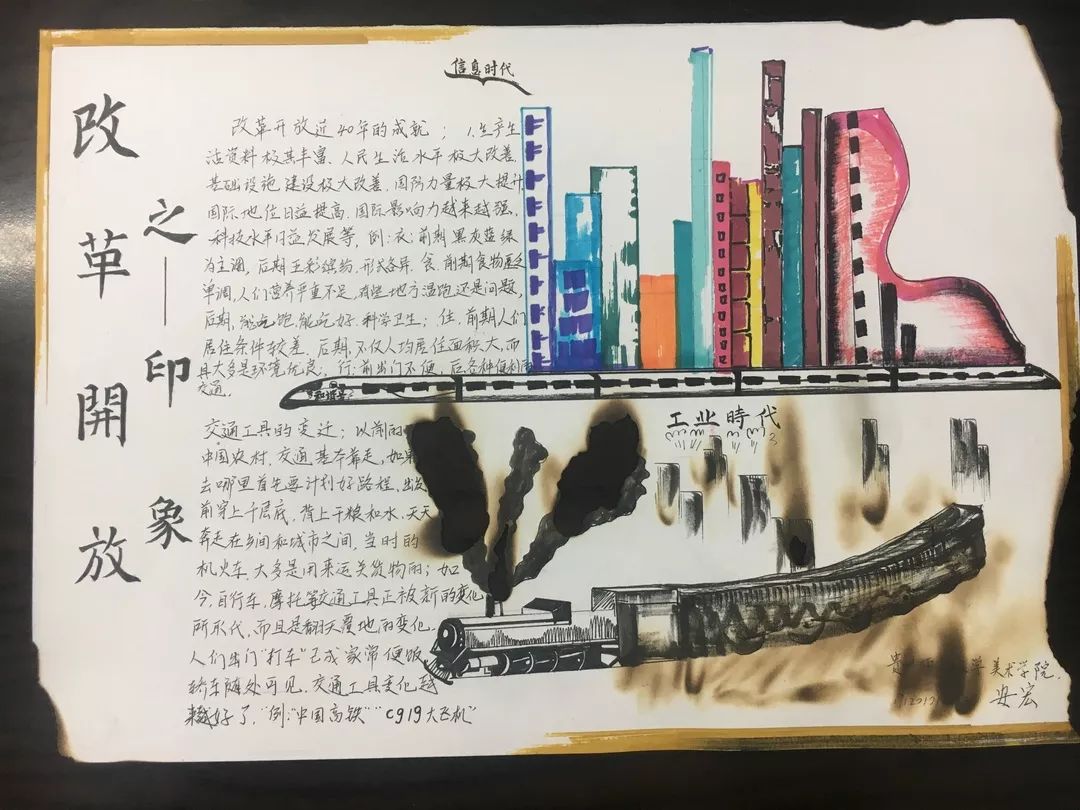 改革開放
之——印象
信息时代
改革开放近40年的成就；1.生产生
活资料极其丰富、人民生活水平极大改善、
基础设施建设极大改善、国防力量极大提升
国际地位日益提高、国际影响力越来越强、
科技水平日益发展等，例：衣：前期黑灰蓝绿
为主调，后期五彩缤纷、形式各异、食、前期食物匮乏
单调，人们营养严重不足，有些地方温饱还是问题，
后期，能吃饱，能吃好、科学卫生；住，前期人们
居住条件较差、后期，不仅人均居住面积大，而
且大多是环境优良；行：前出门不便，后各种便利
交通。
和谐号
工业時代
交通工具的变迁；以前的
中国农村，交通基本靠走，如果
去哪里首先要计划好路程，出发
前穿上千层底，背上干粮和水，天天
奔走在乡间和城市之间，当时的
机火车，大多是用来运关货物的；如
今，自行车，摩托等交通工具正被新的变化
所取代，而且是翻天覆地的变化，
人们出门"打车"已成家常便饭
轿车随处可见，交通工具变化越
来越好了，"例："中国高铁""C919大飞机"
贵 美术学院.
安宏